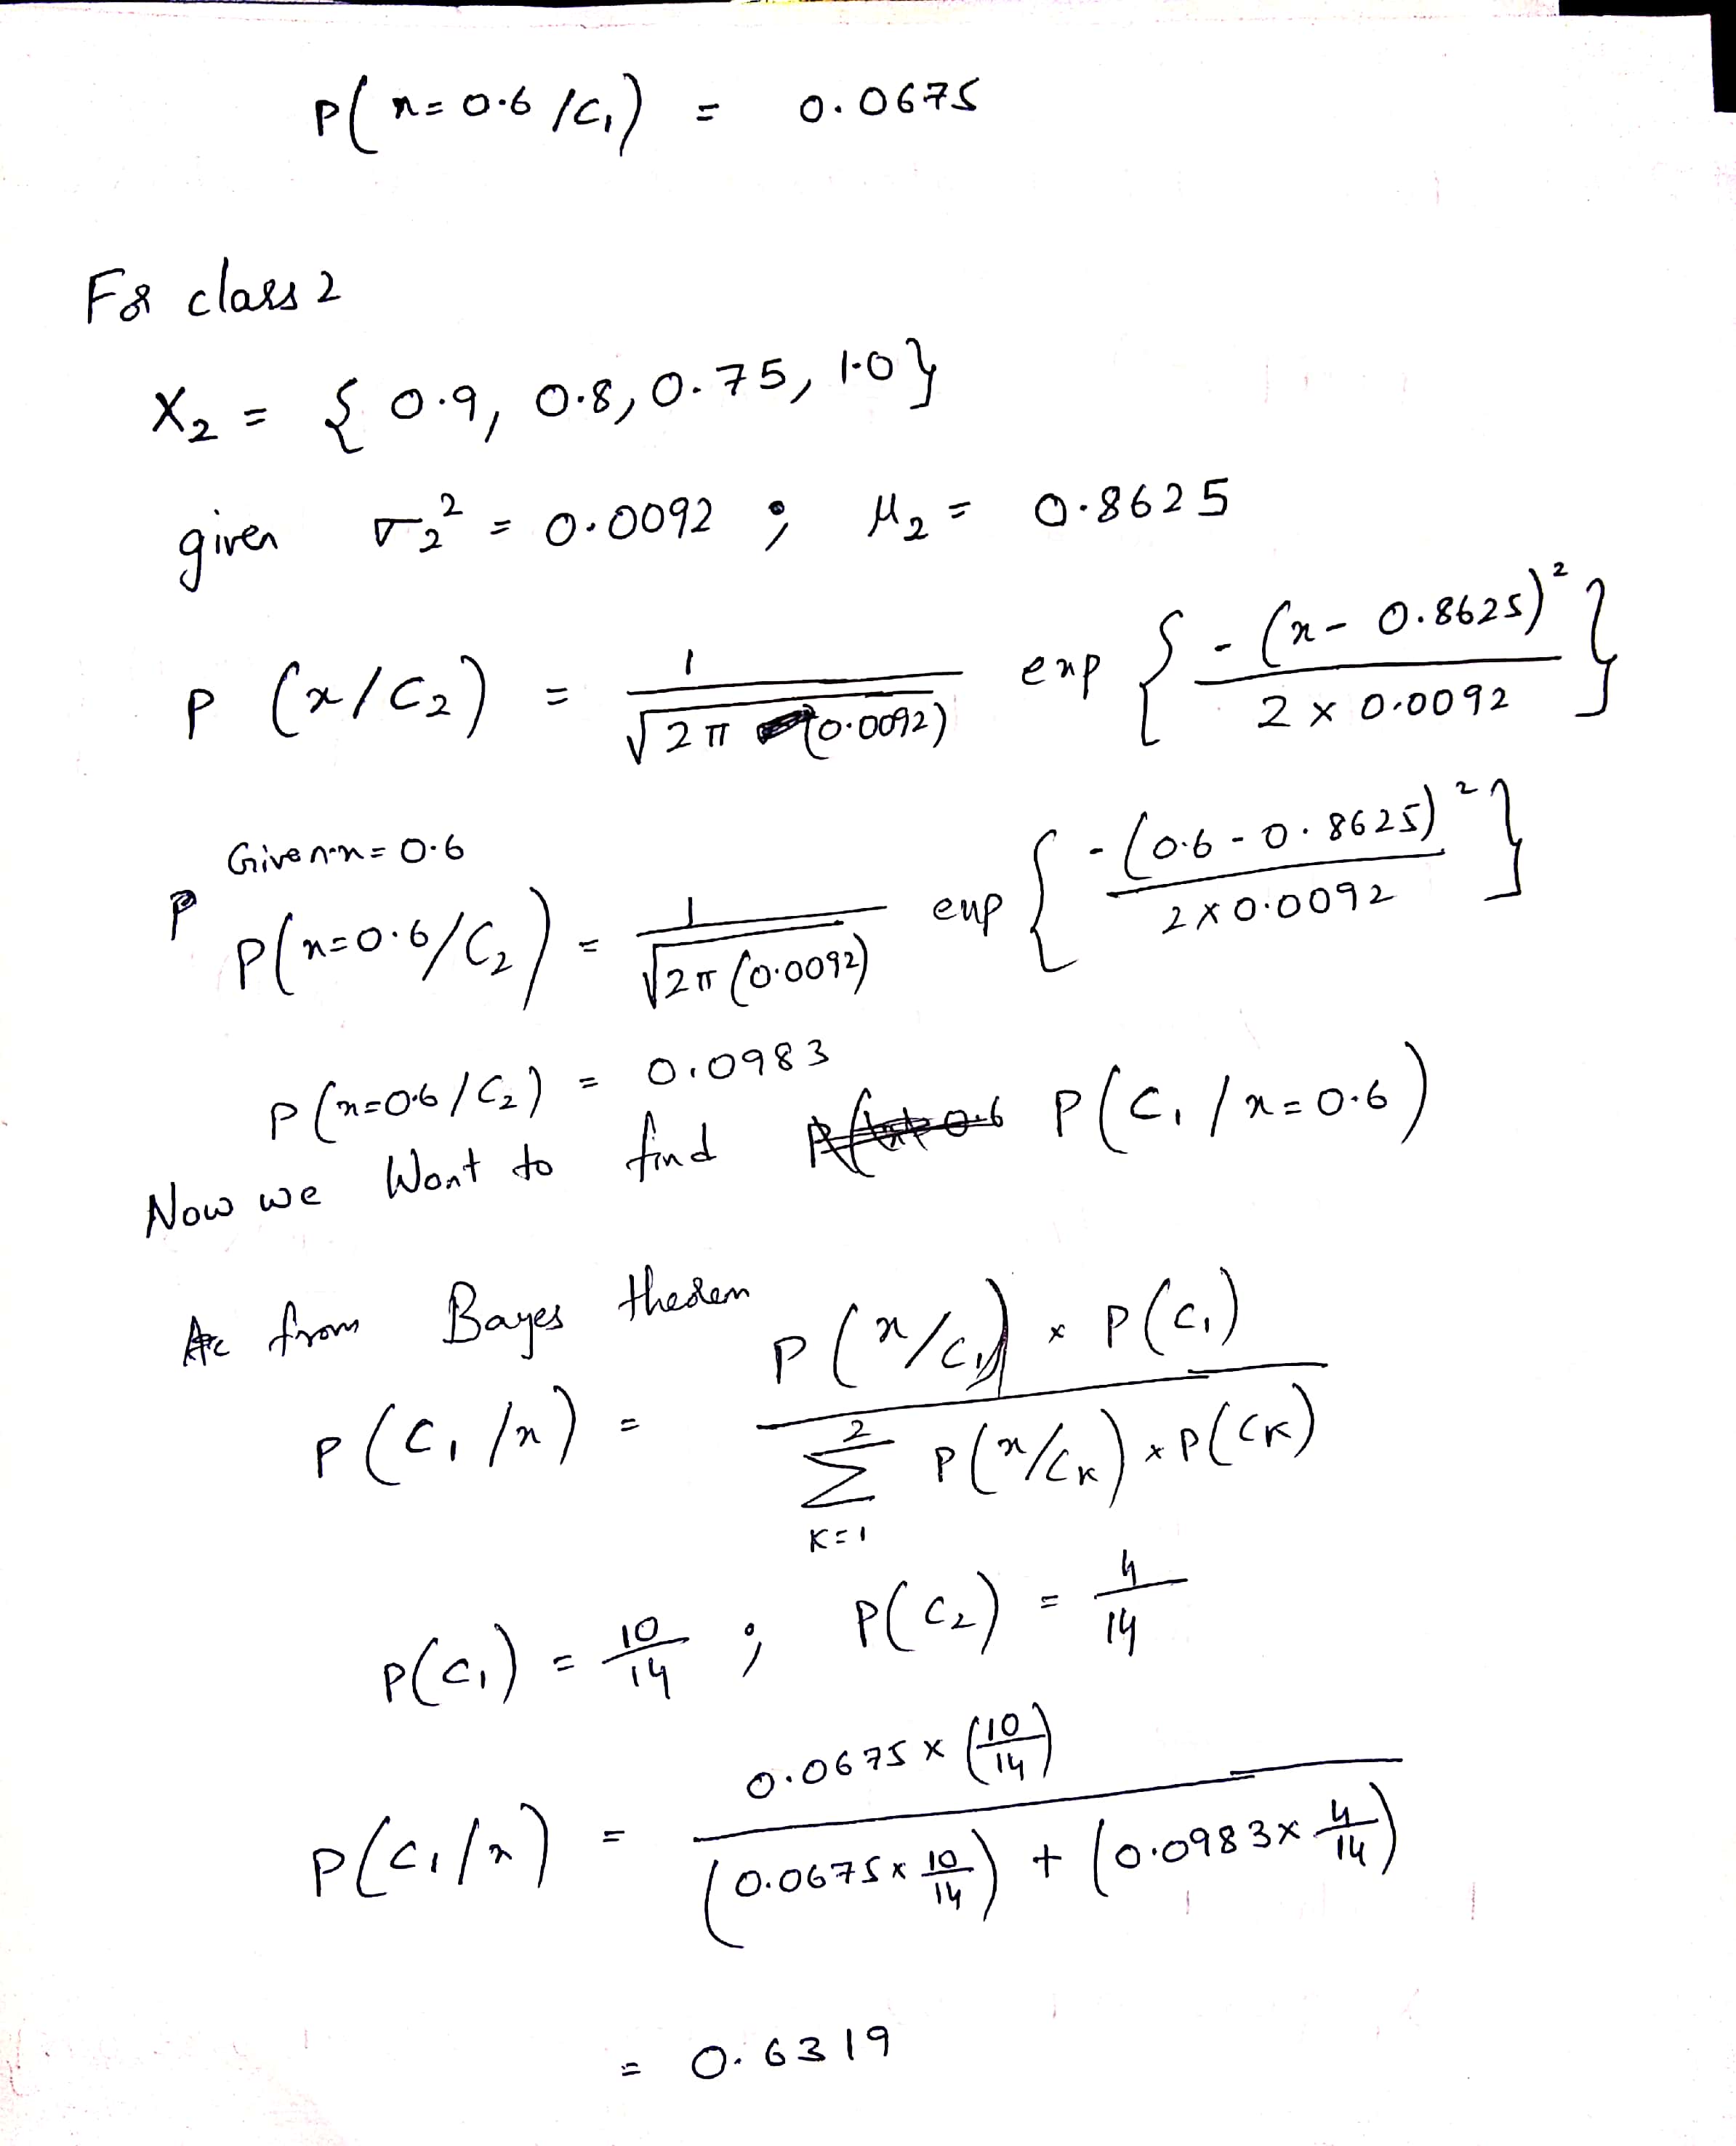 P(x=0.6/C₁) = 0.0675
For class 2
X₂ = {0.9, 0.8, 0.75, 1.0}
given σ₂² = 0.0092 ; μ₂ = 0.8625
P(x/C₂) = 1/√(2π(0.0092)) exp{-(x-0.8625)²/(2×0.0092)}
Given x=0.6
P(x=0.6/C₂) = 1/√(2π(0.0092)) exp{-(0.6-0.8625)²/(2×0.0092)}
P(x=0.6/C₂) = 0.0983
Now we Want to find P(C₁/x=0.6)
from Bayes theorem
P(C₁/x) = P(x/C₁) × P(C₁) / ∑_{K=1}^{2} P(x/C_K) × P(C_K)
P(C₁) = 10/14 ; P(C₂) = 4/14
P(C₁/x) = 0.0675 × (10/14) / (0.0675 × 10/14) + (0.0983 × 4/14)
= 0.6319